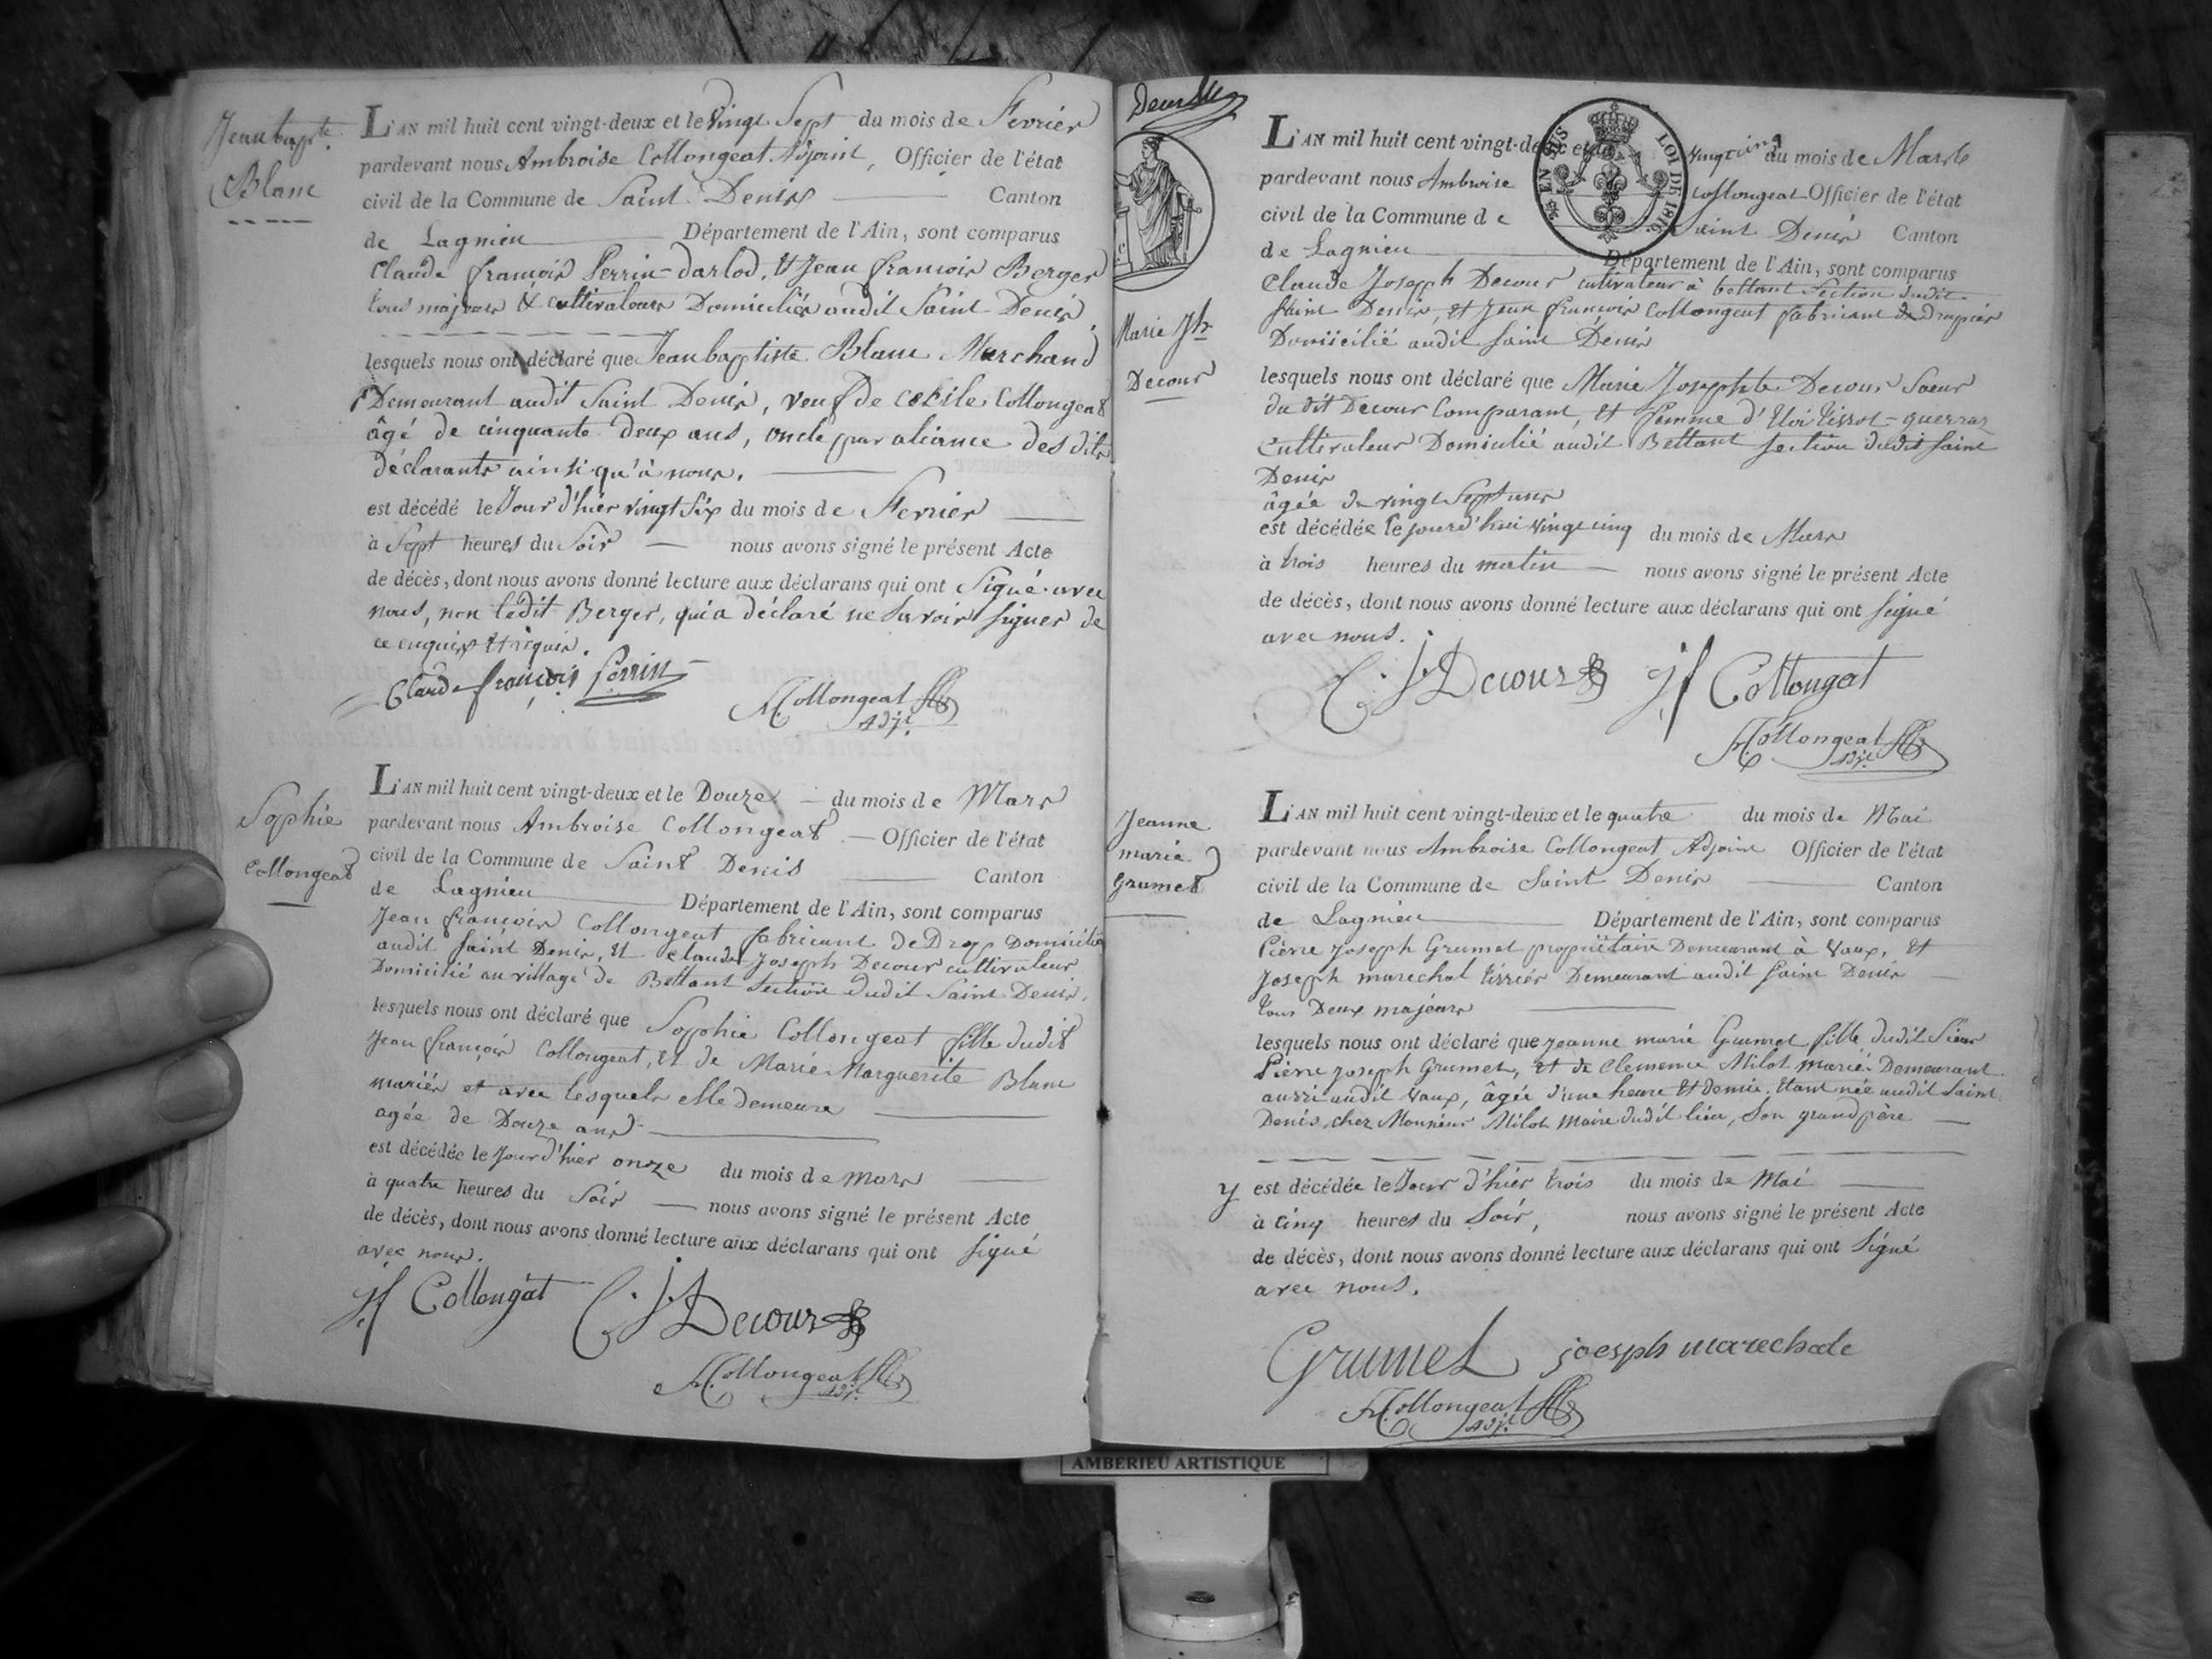 Jean bapte.
Blanc
L'AN mil huit cent vingt-deux et le vingt Sept du mois de Fevrier
pardevant nous Ambroise Collongeat Adjoint, Officier de l'état
civil de la Commune de Saint Denis Canton
de Lagnieu Département de l'Ain, sont comparus
Claude françois Perrin-darlod, et Jean françois Berger
tous majeurs & cultivateurs Domiciliés audit Saint Denis
lesquels nous ont déclaré que Jean baptiste Blanc Marchand
Demeurant audit Saint Denis, veuf de Cécile Collongeat
âgé de cinquante deux ans, oncle par aliance des dits
déclarants ainsi qu'à nous.
est décédé le Jour d'hier vingt Six du mois de Fevrier
à Sept heures du Soir nous avons signé le présent Acte
de décès, dont nous avons donné lecture aux déclarans qui ont Signé avec
nous, non ledit Berger, qui a déclaré ne Savoir Signer de
ce enquis et requis.
Claude françois Perrin
A. Collongeat
Adjt.
Sophie
Collongeat
L'AN mil huit cent vingt-deux et le Douze du mois de Mars
pardevant nous Ambroise Collongeat Officier de l'état
civil de la Commune de Saint Denis Canton
de Lagnieu Département de l'Ain, sont comparus
Jean françois Collongeat fabricant de Drap Domicilié
audit Saint Denis, et Claude Joseph Decour cultivateur
Domicilié au village de Bettant Section dudit Saint Denis,
lesquels nous ont déclaré que Sophie Collongeat fille dudit
Jean françois Collongeat, et de Marie Marguerite Blanc
mariés et avec lesquels elle demeure
agée de Douze ans
est décédée le Jour d'hier onze du mois de Mars
à quatre heures du Soir nous avons signé le présent Acte
de décès, dont nous avons donné lecture aux déclarans qui ont Signé
avec nous.
jf Collongat C. J. Decour
A. Collongeat
Adjt.
LOI DE 1816.
EN SUS
Marie Jte
Decour
L'AN mil huit cent vingt-deux et le vingt cinq du mois de Mars
pardevant nous Ambroise Collongeat Officier de l'état
civil de la Commune de Saint Denis Canton
de Lagnieu Département de l'Ain, sont comparus
Claude Joseph Decour cultivateur à bettant Section dudit
Saint Denis, et Jean françois Collongeat fabricant de drapier
Domicilié audit Saint Denis
lesquels nous ont déclaré que Marie Josephte Decour Sœur
du dit Decour Comparant, et femme d'Eloi Tissot-guerraz
Cultivateur Domicilié audit Bettant Section dudit Saint
Denis
âgée de vingt Sept ans
est décédée le jourd'hui vingt cinq du mois de Mars
à trois heures du matin nous avons signé le présent Acte
de décès, dont nous avons donné lecture aux déclarans qui ont Signé
avec nous.
C. J. Decour jf Collongat
A. Collongeat
Adjt.
Jeanne
marie
Grumet
L'AN mil huit cent vingt-deux et le quatre du mois de Mai
pardevant nous Ambroise Collongeat Adjoint Officier de l'état
civil de la Commune de Saint Denis Canton
de Lagnieu Département de l'Ain, sont comparus
Pierre Joseph Grumet propriétaire Demeurant à Vaux, et
Joseph marechal tissier Demeurant audit Saint Denis
tous Deux majeurs
lesquels nous ont déclaré que jeanne marie Grumet fille dudit Sieur
Pierre joseph Grumet, et de Clemence Milot mariés Demeurant
aussi audit Vaux, âgée d'une heure et demie. Etant née audit Saint
Denis, chez Monsieur Milot Maire dudit lieu, Son grand père
y est décédée le Jour d'hier trois du mois de Mai
à Cinq heures du Soir, nous avons signé le présent Acte
de décès, dont nous avons donné lecture aux déclarans qui ont Signé
avec nous.
Grumet joesph marechale
A. Collongeat
Adjt.
AMBERIEU ARTISTIQUE